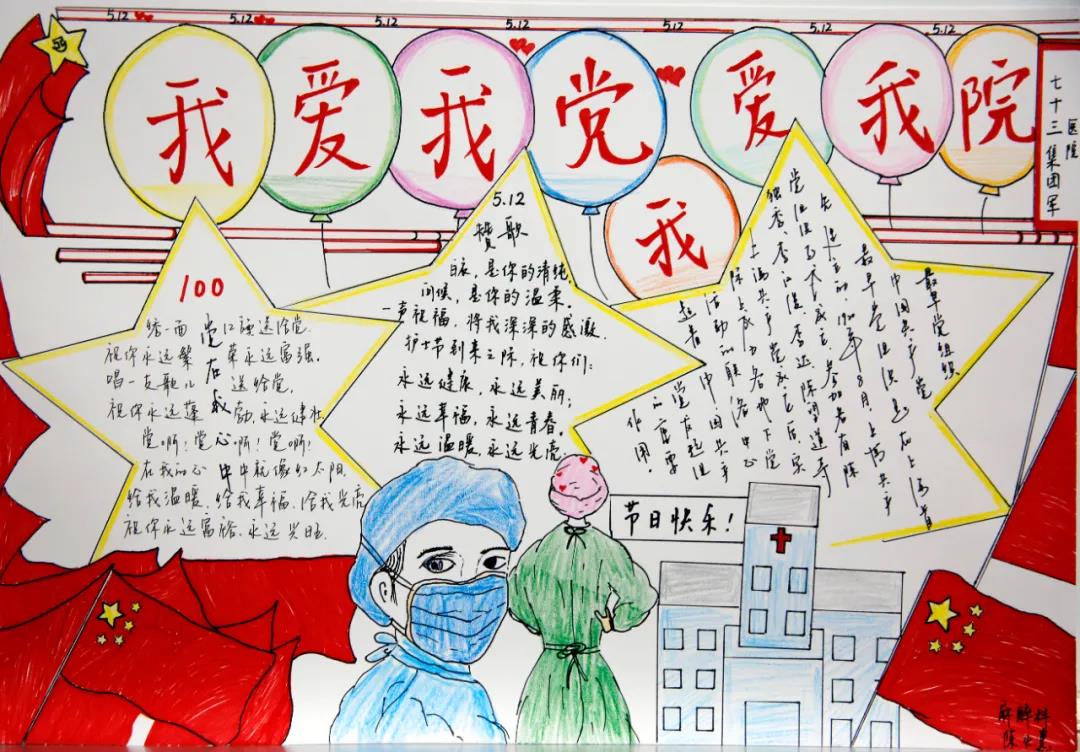 5.12 5.12 5.12 5.12 5.12 5.12
我爱我党 爱我院
我
七十三集团军
医院
100
祝你永远繁荣永远富强.
唱一支歌儿 送给党.
祝你永远蓬勃,永远健壮
党啊!党啊!党啊!
党在我心中
在我的心中就像红太阳.
给我温暖.给我幸福.给我光亮
祝你永远富裕.永远兴旺.
5.12
赞歌
白衣,是你的清纯,
问候,是你的温柔.
一声祝福,将我深深的感激.
护士节到来之际,祝你们:
永远健康,永远美丽;
永远幸福,永远青春.
永远温暖,永远光亮.
最早党组织
中国共产党
最早党组织是在上海首
先建立的.1920年8月,上海共产
党组织正式成立,参加者有陈
独秀、李汉俊、李达、陈望道等
上海共产党成立后,实
际上成为各地下党
活动的联络中心
起着中国共产
党发起组
的重要
作用.
节日快乐!
麻醉科